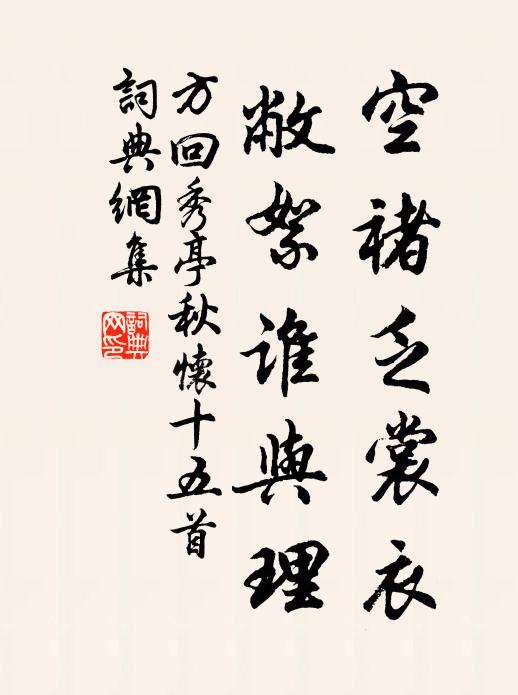 空褚乏裳衣
敝絮誰與理
方回秀亭秋懷十五首
詞典網集
詞典網印